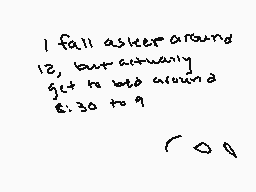 I fall asleep around
12, but actually
get to bed around
8:30 to 9